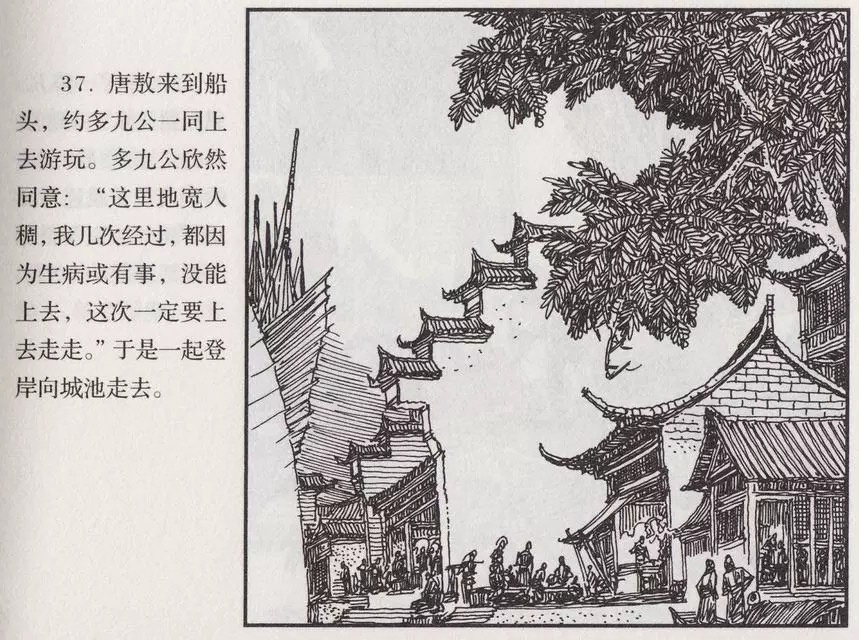 37. 唐敖来到船
头，约多九公一同上
去游玩。多九公欣然
同意：“这里地宽人
稠，我几次经过，都因
为生病或有事，没能
上去，这次一定要上
去走走。”于是一起登
岸向城池走去。